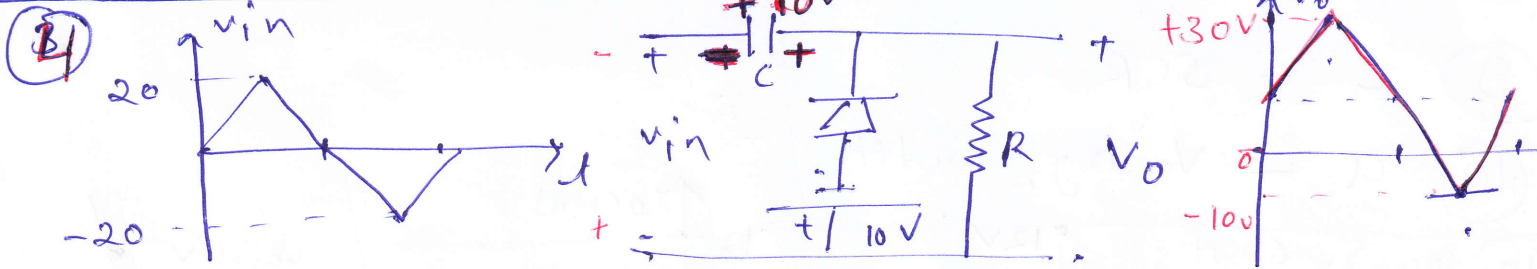 4
vin
20
-20
t
+ 10V
- + + C +
vin
R
Vo
+ 10V
+ -
+30V
0
-10V